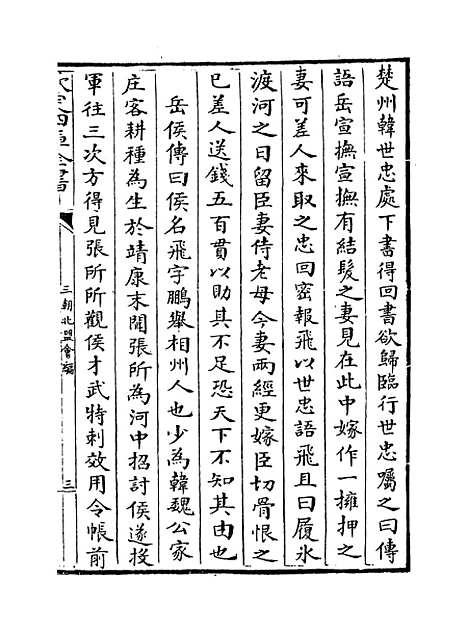 楚州韓世忠處下書得回書欲歸臨行世忠囑之曰傳
語岳宣撫宣撫有結髮之妻見在此中嫁作一擁押之
妻可差人來取之忠回密報飛以世忠語飛且曰履氷
渡河之日留臣妻侍老母今妻兩經更嫁臣切骨恨之
已差人送錢五百貫以助其不足恐天下不知其由也
岳侯傳曰侯名飛字鵬舉相州人也少為韓魏公家
庄客耕種為生於靖康末聞張所為河中招討侯遂投
軍往三次方得見張所所觀侯才武特刺效用令帳前
欽定四庫全書
三朝北盟會編
三